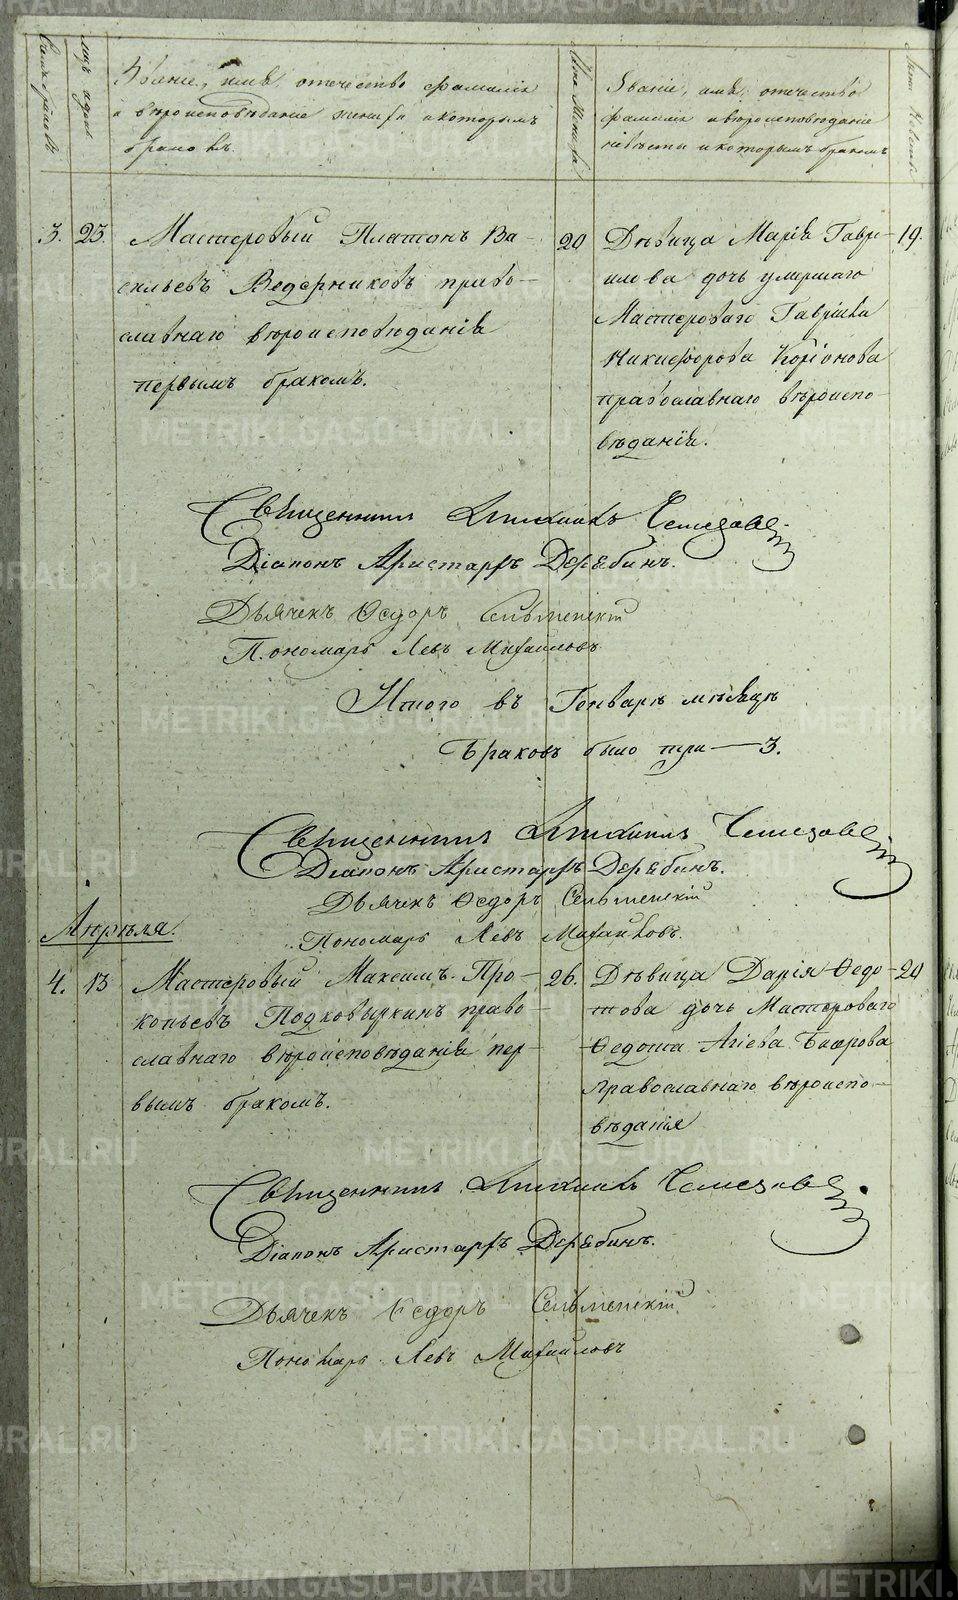 Звание, имя, отечество фамилия
и вѣроисповѣдание жениха и которымъ
бракомъ.
Звание, имя, отечество
фамилия и вѣроисповѣдание
невѣсты и которымъ бракомъ
3. 23. Мастеровый Платонъ Ва-
сильевъ Ведерниковъ право-
славнаго вѣроисповѣданія
первымъ бракомъ.
20
Дѣвица Марія Гаври-
лова дочь умершаго
Мастероваго Гавріила
Никифорова
православнаго вѣроиспо-
вѣданія.
19.
Священникъ
Діаконъ Аристархъ Дерябинъ.
Дьячекъ Ѳедоръ Сельменскій
Пономарь Левъ Михайловъ
Итого въ Генварѣ мѣсяцѣ
браковъ было три — 3.
Священникъ
Діаконъ Аристархъ Дерябинъ.
Дьячекъ Ѳедоръ Сельменскій
Пономарь Левъ Михайловъ.
Апрѣля.
4. 13 Мастеровый Максимъ Про-
копьевъ Подковыркинъ право-
славнаго вѣроисповѣданія пер-
вымъ бракомъ.
26.
Дѣвица Дарія Ѳедо-
това дочь Мастероваго
Ѳедота
православнаго вѣроиспо-
вѣданія
20
Священникъ
Діаконъ Аристархъ Дерябинъ.
Дьячекъ Ѳедоръ Сельменскій
Пономарь Левъ Михайловъ
METRIKI.GASO-URAL.RU